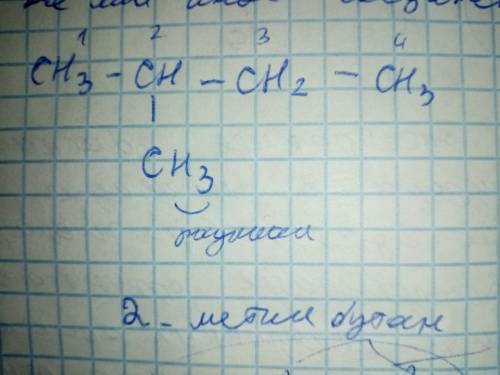 1 2 3 4
CH3 - CH - CH2 - CH3
|
CH3
2 - метил бутан